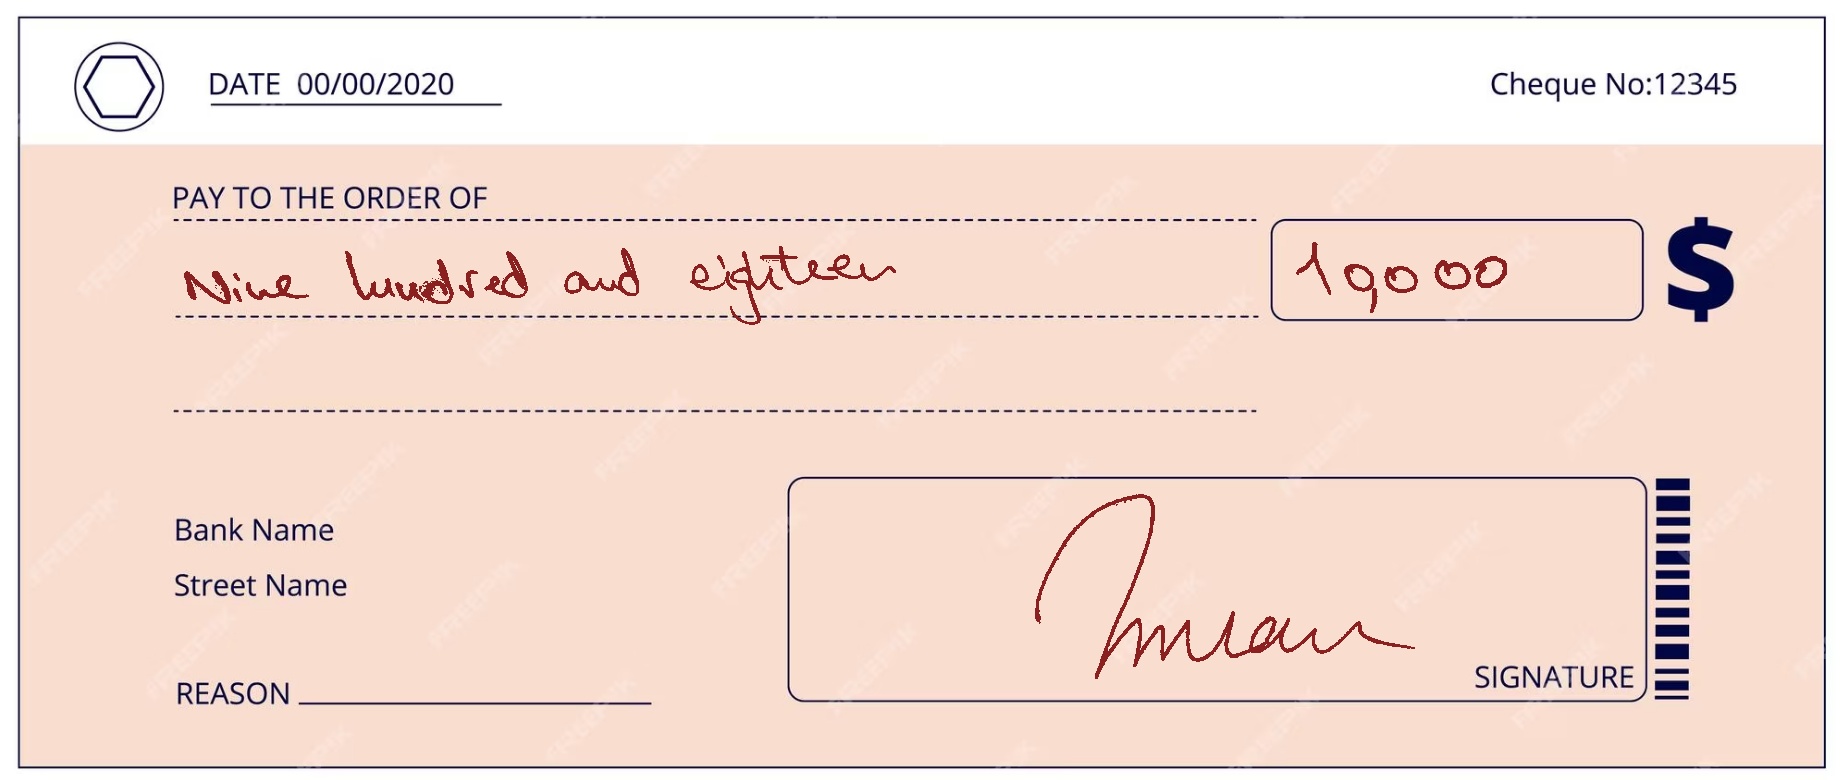 DATE 00/00/2020
Cheque No:12345
PAY TO THE ORDER OF
Nine hundred and eighteen
10,000 $
Bank Name
Street Name
REASON
SIGNATURE